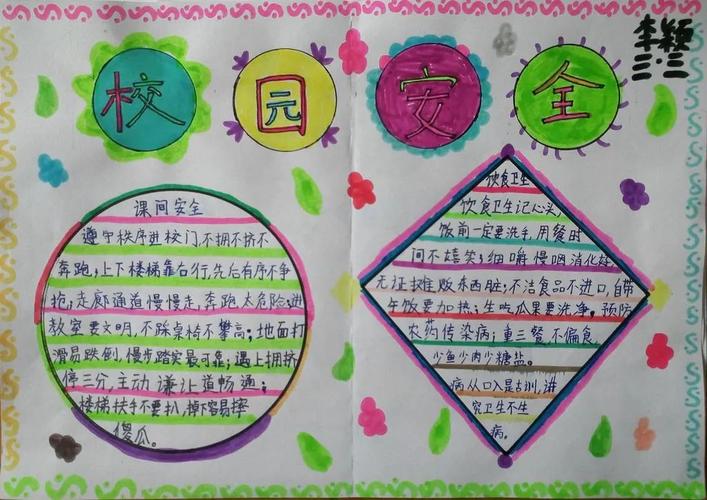 校园安全
李颖
三.三
课间安全
遵守秩序进校门,不拥不挤不
奔跑,上下楼梯靠右行,先后有序不争
抢,走廊通道慢慢走,奔跑太危险;进
教室要文明,不踩桌椅不攀高;地面打
滑易跌倒,慢步踏实最可靠;遇上拥挤
停三分,主动谦让道畅通;
楼梯扶手不要扒,掉下容易摔
傻瓜。
饮食卫生
饮食卫生记心头,
饭前一定要洗手,用餐时
间不嬉笑;细嚼慢咽消化好,
无证摊贩东西脏;不洁食品不进口,自带
午饭要加热;生吃瓜果要洗净。预防
农药传染病;重三餐,不偏食,
少鱼少肉少糖盐。
病从口入是古训,讲
究卫生不生
病。